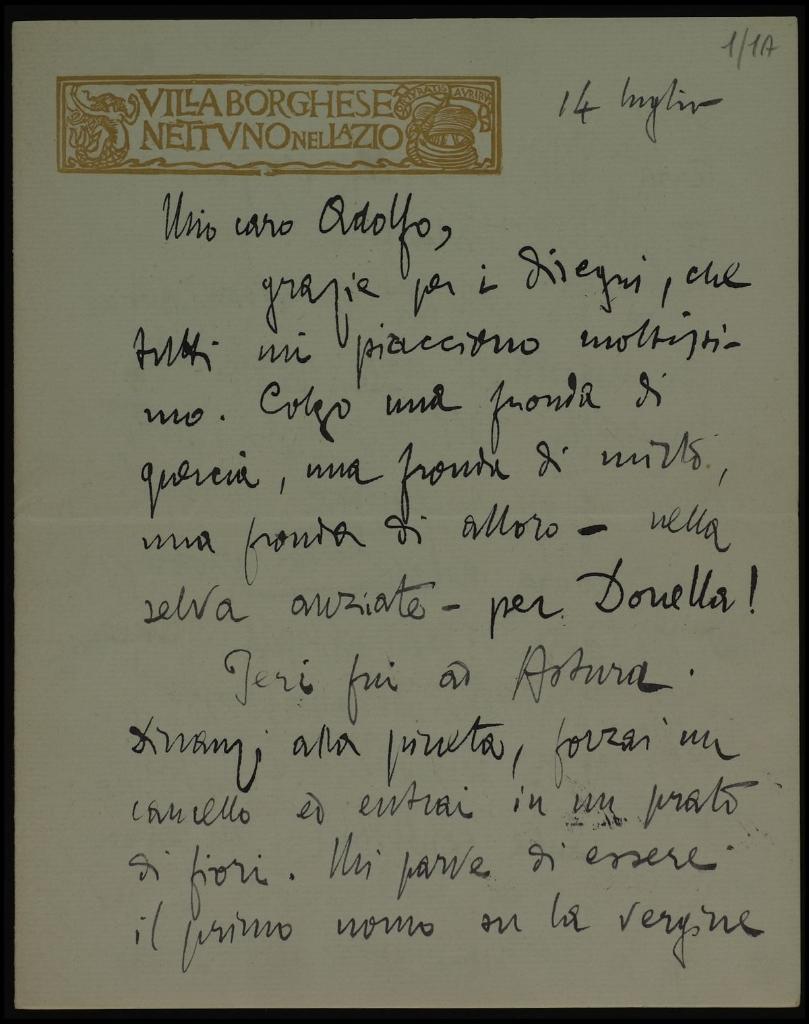 1/1A
VILLA BORGHESE
NETTVNO NEL LAZIO
14 luglio
Mio caro Adolfo,
grazie per i disegni, che
tutti mi piacciono moltissi-
mo. Colgo una fronda di
quercia, una fronda di mirto,
una fronda di alloro – nella
selva anziate – per Donella!
Jeri fui ad Astura.
Dinanzi alla pineta, forzai un
cancello ed entrai in un prato
di fiori. Mi parve di essere
il primo uomo su la vergine